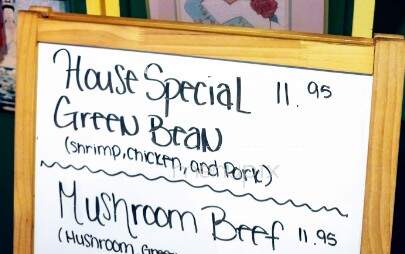 House Special 11.95
Green Bean
(shrimp, chicken, and Pork)
Mushroom Beef 11.95
(Mushroom